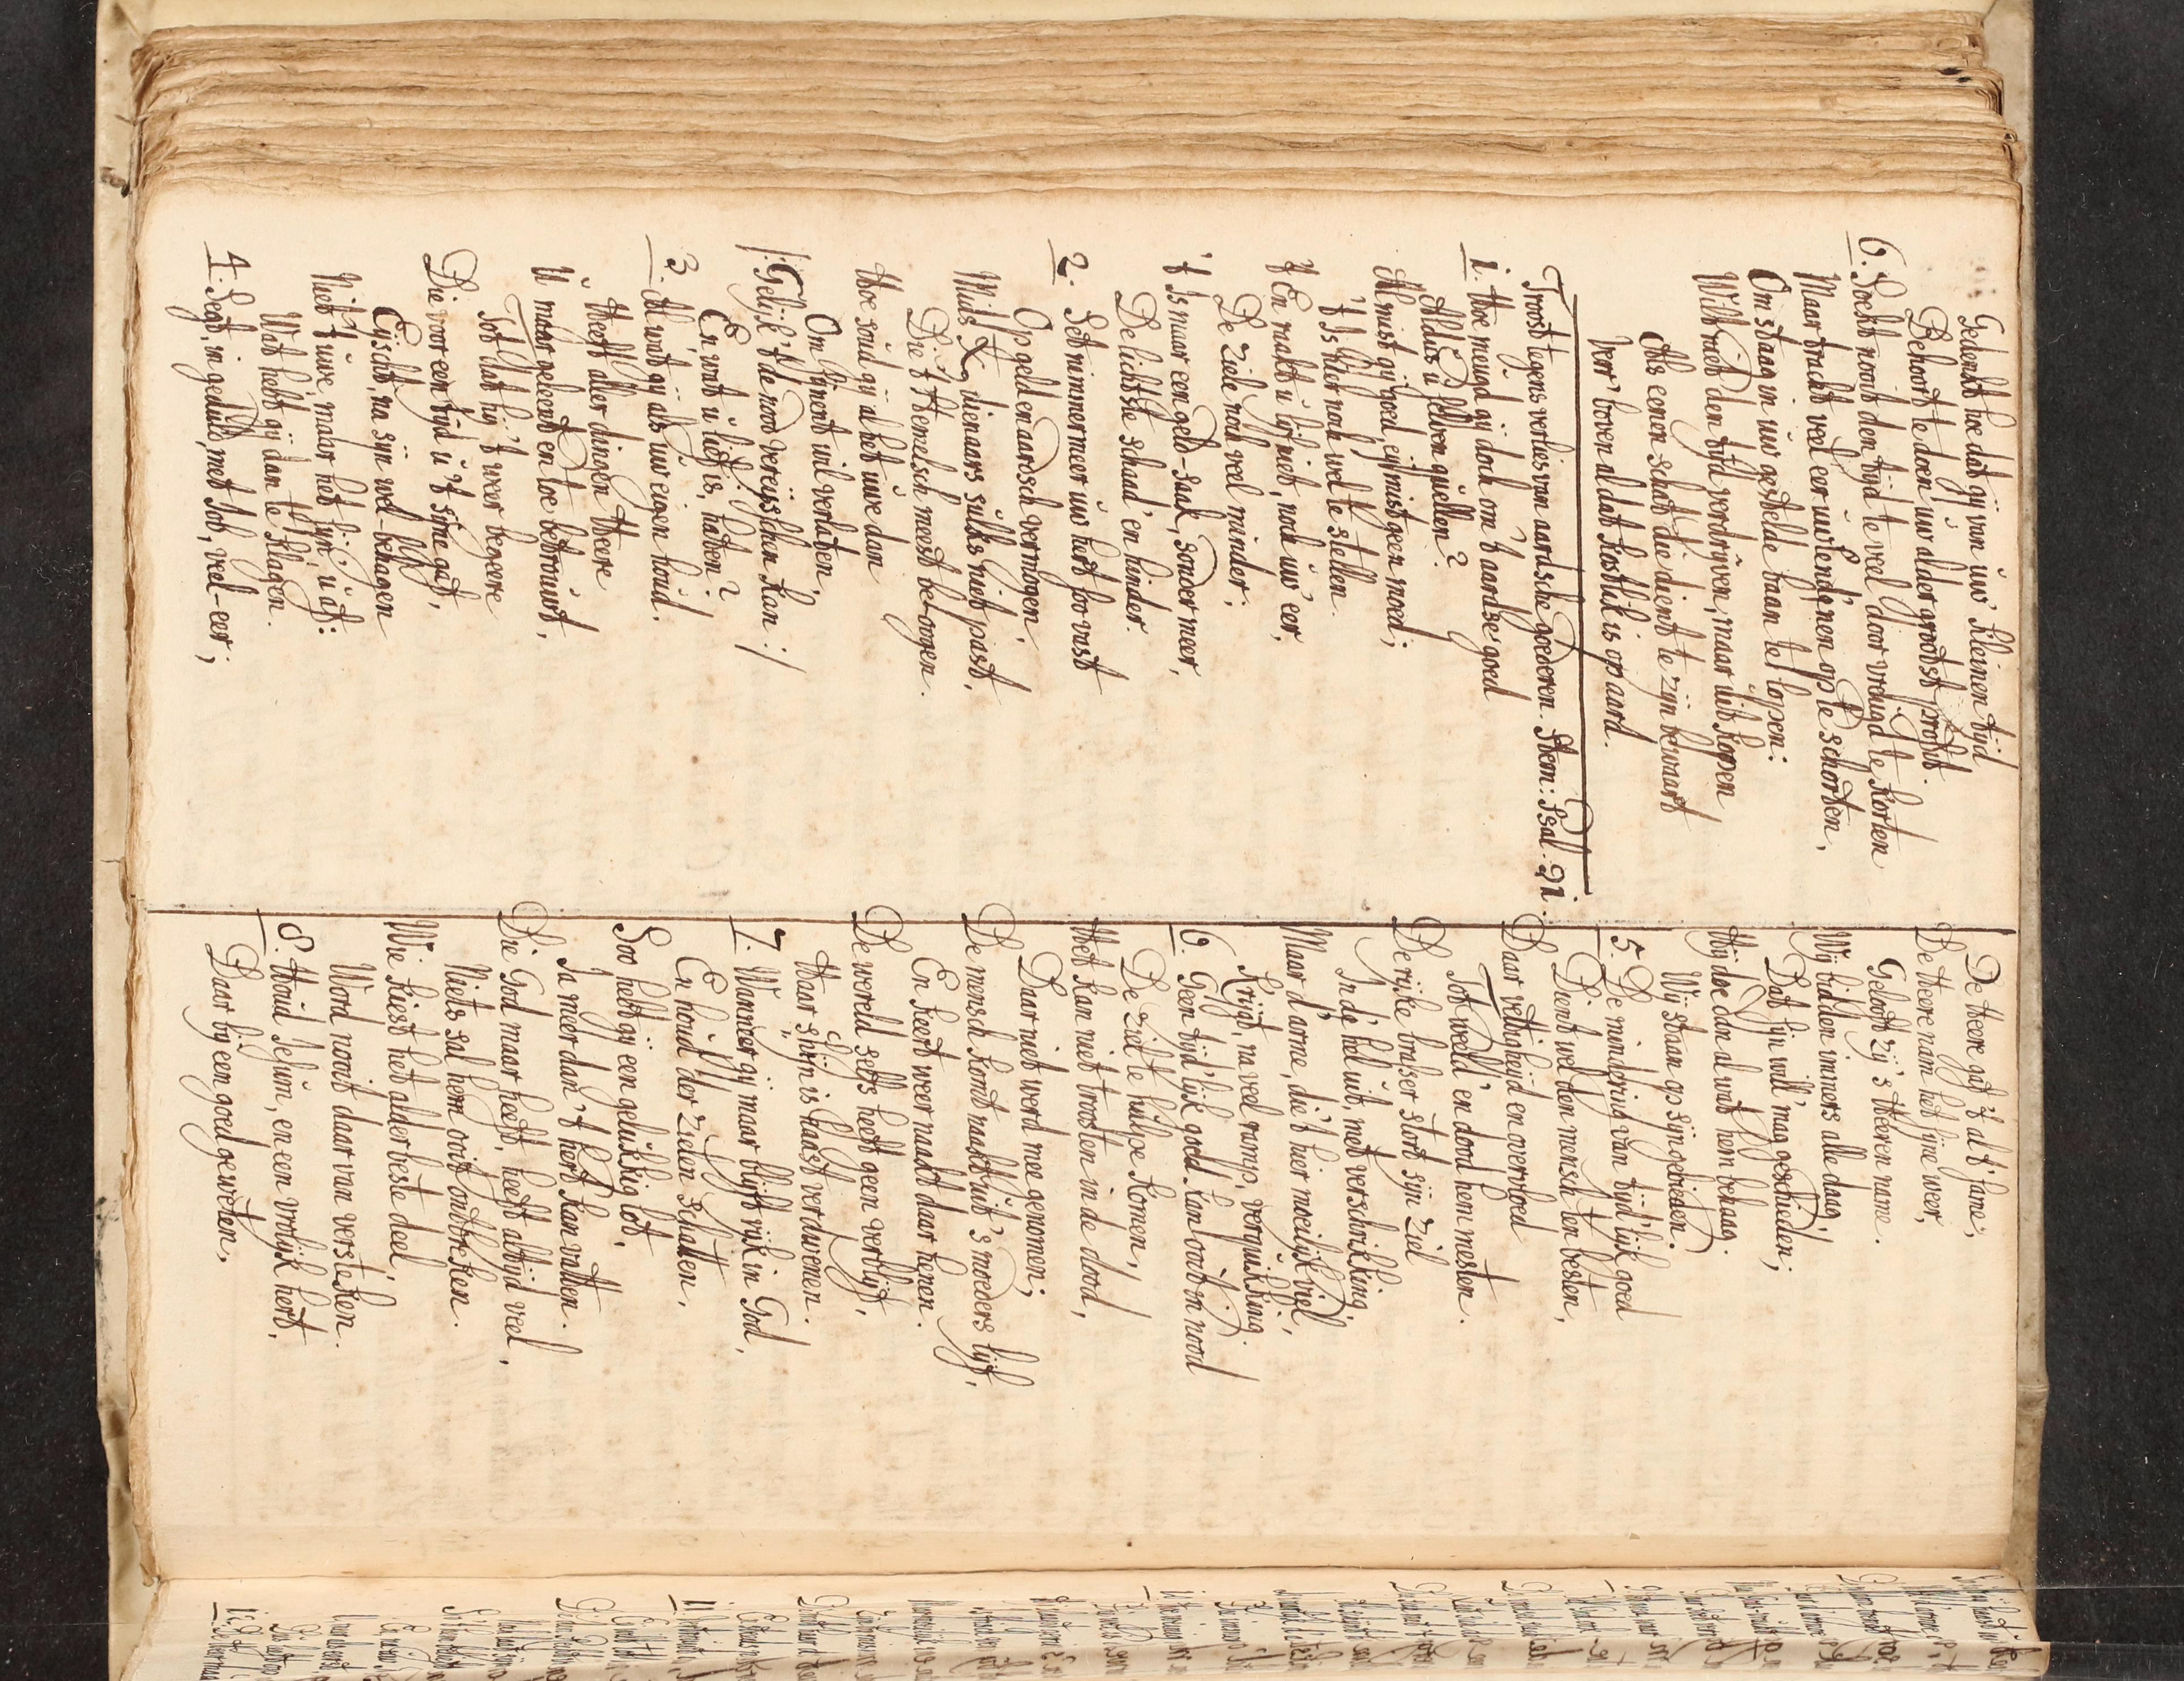 Gedenkt hoe dat gij van uw' kleinen tijd
Behoort te doen uw alder grootst profijt.
6. Soekt nooit den tijd te veel door vreugd te korten
Maar tracht veel eer uw' lend'nen op te schorten,
Om staag in uw gestelde baan te lopen:
Wilt niet den tijd verdrijven, maar uitkopen
Als eenen schat die dient te zijn bewaart
Ver' boven al dat kostlik is op aard.
Troost tegens verlies van aardsche goederen. Stem: Psal. 21.
1. Hoe meugd gij doch om 't aardse goed
Aldus u selven quellen?
Al mist gij goed, eij mist geen moed;
't Is hier noch wel te stellen.
't En raakt u lijf niet, noch uw' eer,
De Ziele noch vel minder;
't Is maar een geld-saak, sonder meer,
De lichtste schaad' en hinder.
2. Set nimmermeer uw hert soo vast
Op geld en aardsch vermogen,
Mids X dienaars sulks niet past,
Die 't Hemelsch meest be-ogen.
Hoe soud gij al het uwe dan
Om sijnent wil verlaten,
/: Gelijk 't de nood vereijsschen kan :/
En wat u lief is, haten?
3. Al wat gij als uw eigen houd,
Heeft aller dingen Heere
U maar geleent en toe betrouwt,
Tot dat hij 't weer begeere
Die voor een tijd u 't sijne gaf,
Eijscht, na sijn wel-behagen
Niet 't uwe, maar het sijn', u af:
Wat hebt gij dan te klagen.
4. Segt, in geduld, met Job, veel-eer;
De Heere gaf 't al t' same;
De Heere nam het sijne weer,
Gelooft zij 's Heeren name.
Wij bidden immers alle daag,
Dat sijn will' mag geschieden;
Hij doe dan al wat hem behaag.
Wij staan op sijn gebieden.
5. De mindering van tijd'lijk goed
Dient wel den mensch ten besten,
Daar vettigheijd en overvloed
Tot weeld' en dood hem mesten.
De rijke brasser stort sijn Ziel
In de hel uit, met verschrikking,
Maar d' arme, die 't hier moeilijk viel,
Krijgt, na veel ramp, verquikking.
6. Geen tijd'lijk goed kan ooit in nood
De Ziel te hulpe komen,
Het kan niet troosten in de dood,
Daar niet werd mee genomen;
De mensch komt naakt uit 's moeders lijf,
En keert weer naakt daar henen.
De wereld selfs heeft geen verblijf,
Haar schijn is haast verdwenen.
7. Wanneer gij maar blijft rijk in God,
En houd der zielen schatten,
Soo hebt gij een gelukkig lot,
Ja meer dan 't hert kan vatten.
Die God maar heeft, heeft altijd veel,
Niets sal hem ooit ontbreken.
Wie kiest het alderbeste deel,
Word nooit daar van versteken.
8. Houd Jesum, en een vrolijk hert,
Daar bij een goed geweten,